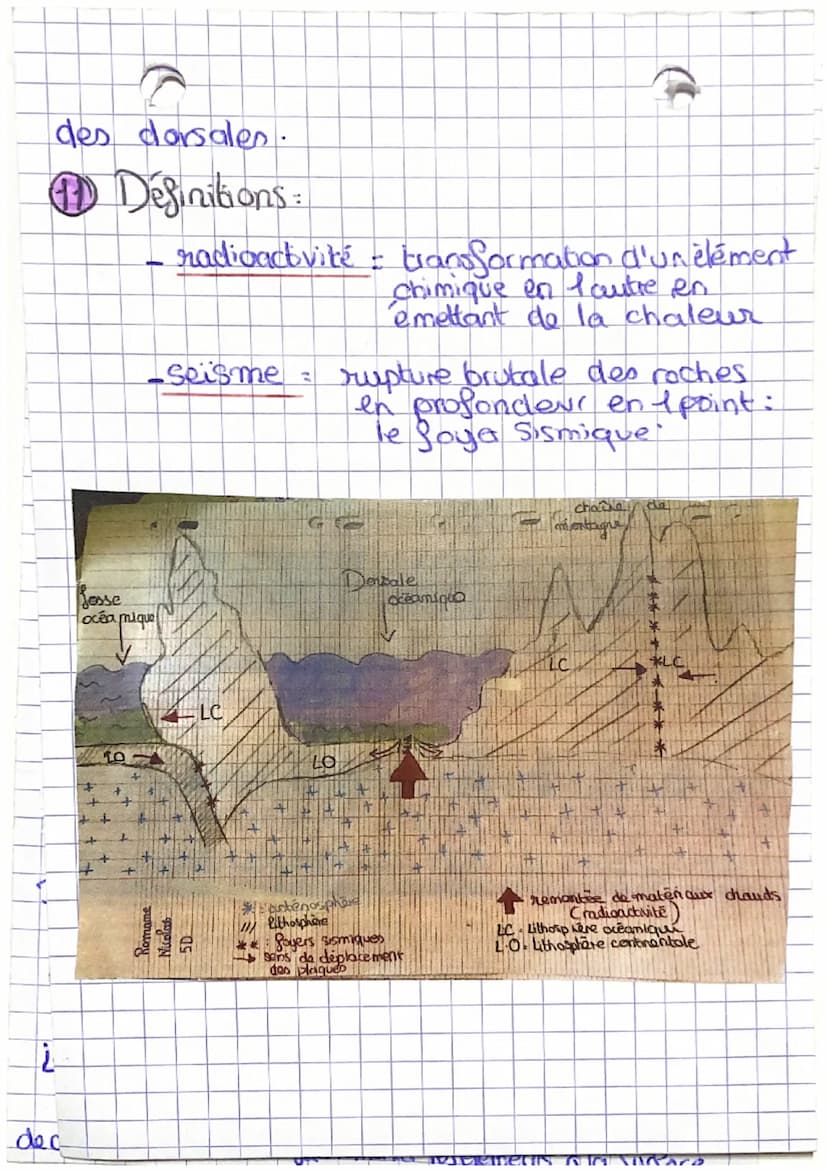 des dorsales.
11) Définitions:
- radioactivité = transformation d'un élément
chimique en 1 autre en
émettant de la chaleur
- seïsme = rupture brutale des roches
en profondeur en 1 point :
le foyer sismique.
chaîne de
montagne
fosse
océanique
Dorsale
océanique
LC
LC
LC
LO
LO
remontée de matériaux chauds
(radioactivité)
LC = Lithosphère océanique
L.O = Lithosphère continentale
* : asténosphère
/// lithosphère
** : foyers sismiques
→ sens de déplacement
des plaques
Romane
Nicolas
5D
i
dec
à la surface